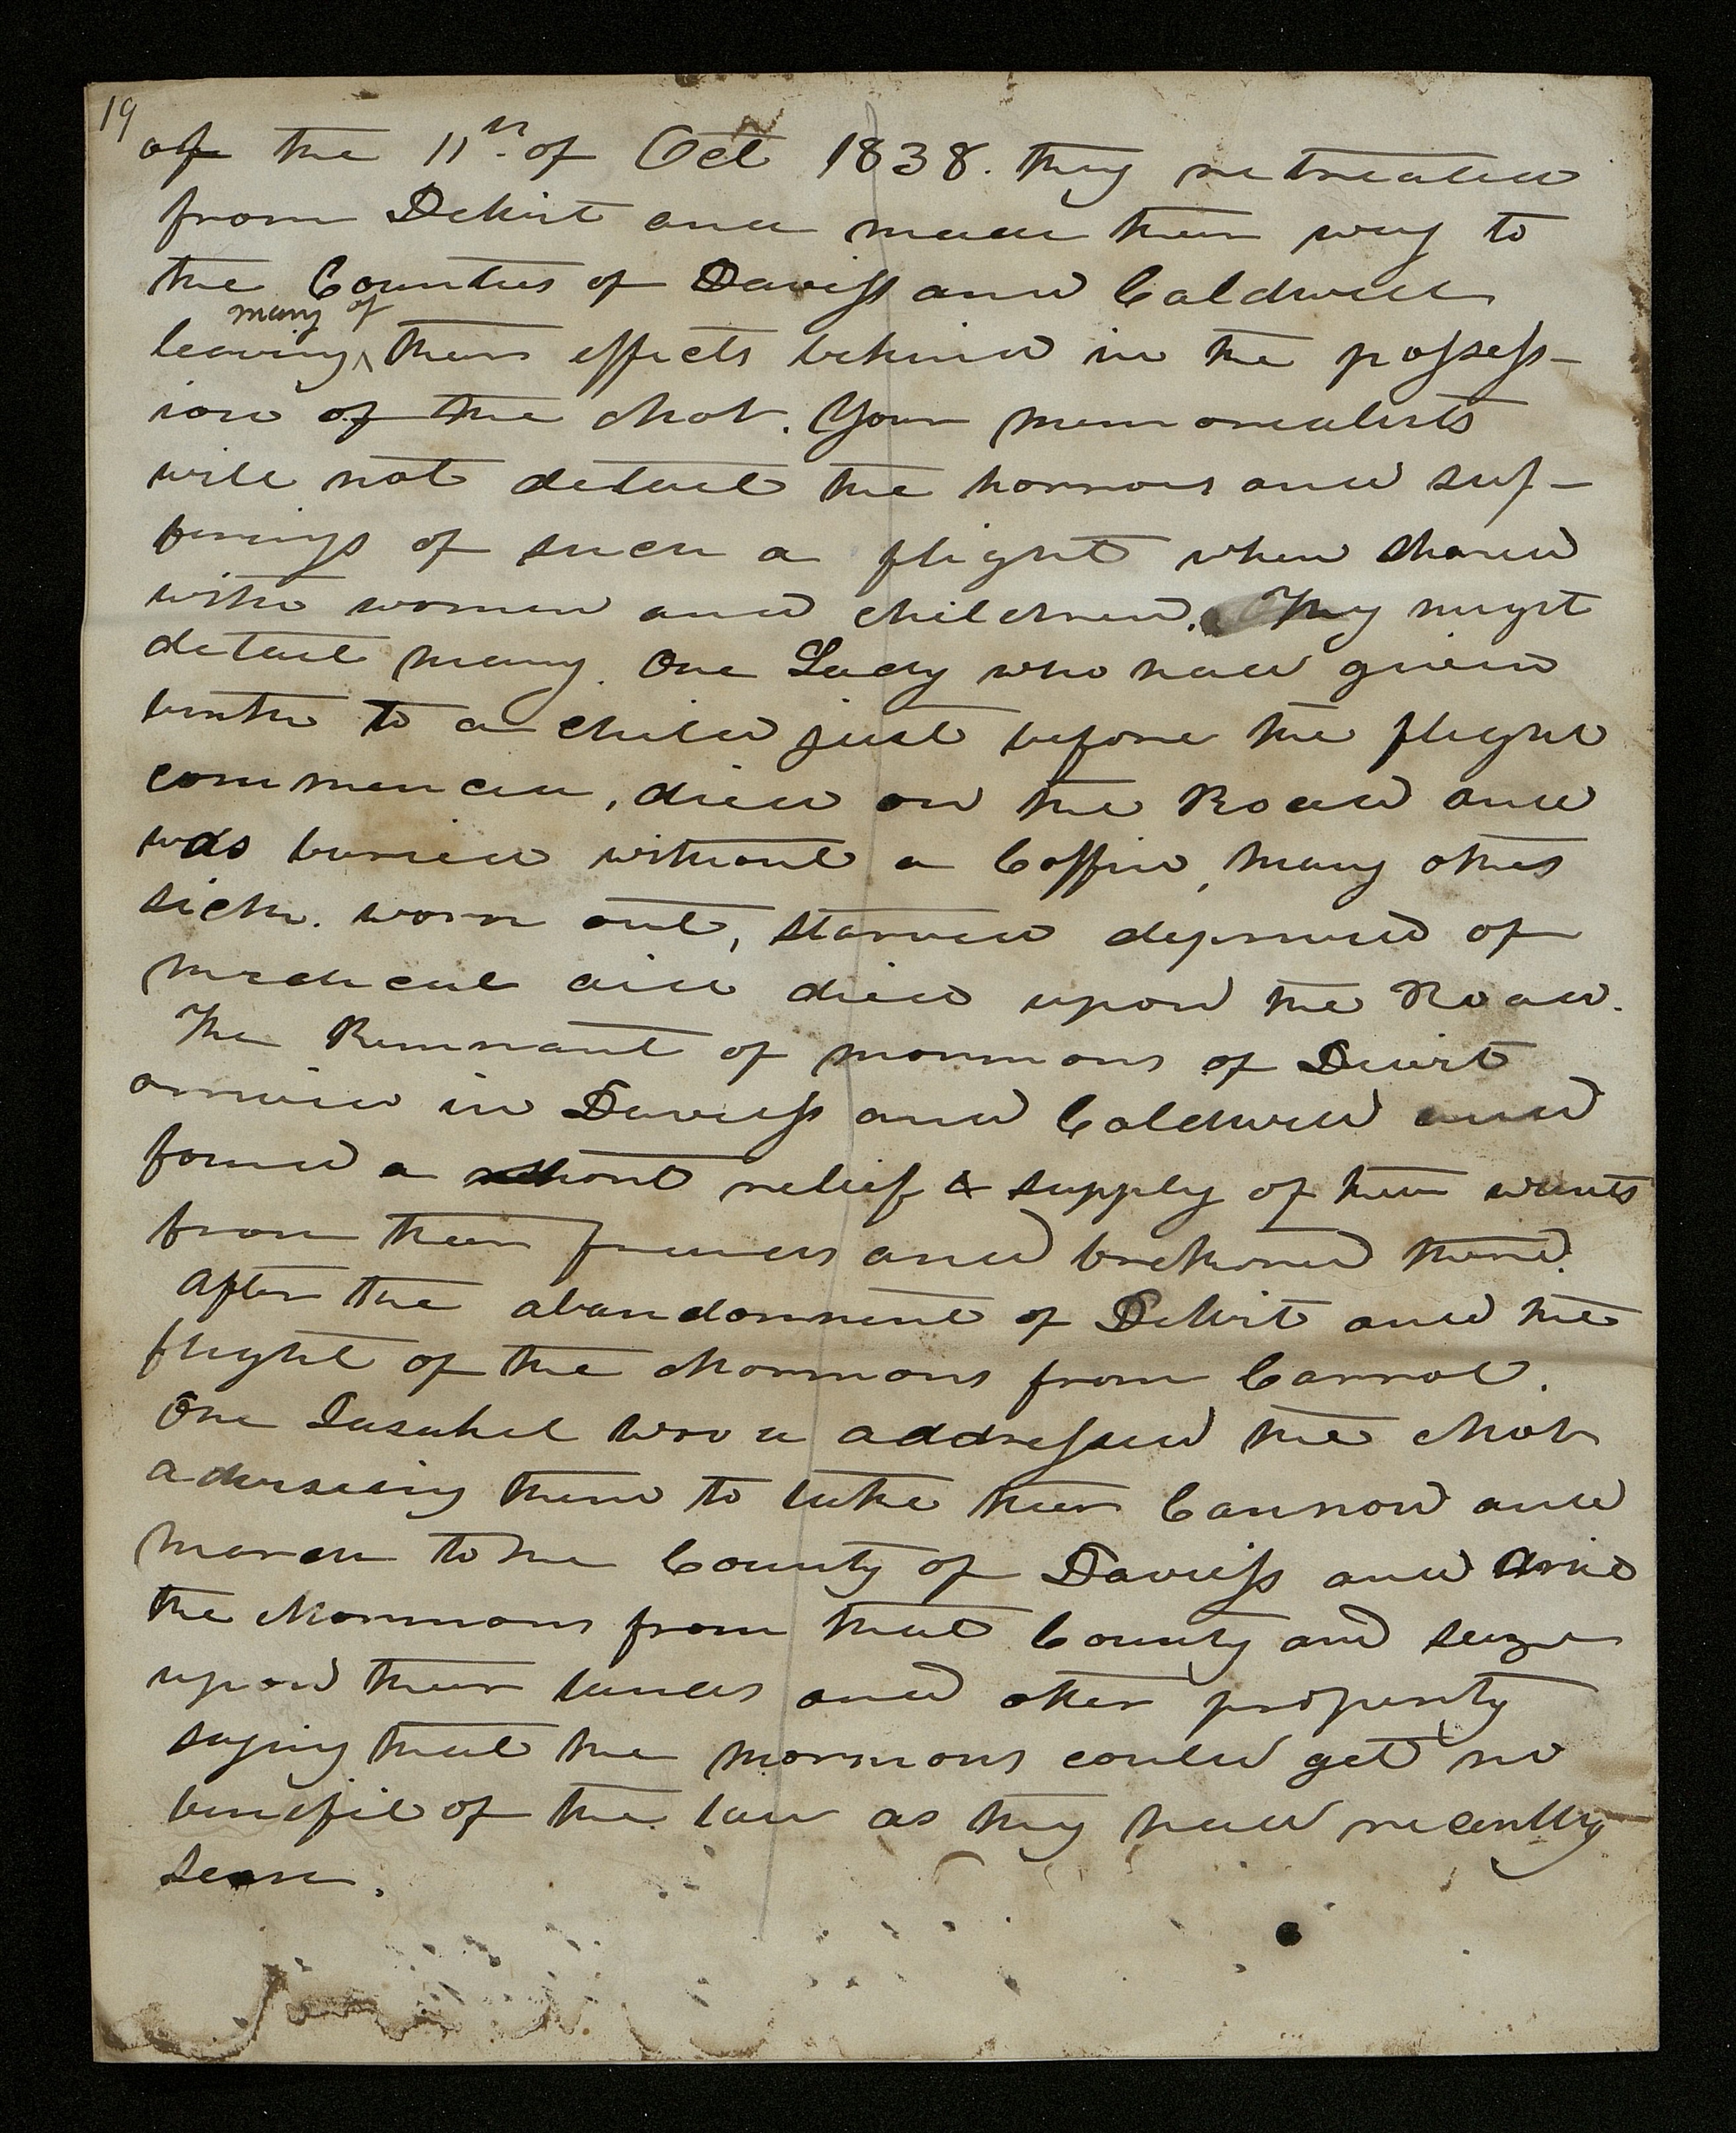 19
of the 11th. of Oct 1838. they retreated
from Dewit and made their way to
the Counties of Daviess and Caldwell
many of
leaving ^ their effects behind in the possess-
ion of the Mob. Your memorialists
will not detail the horrors and suf-
ferings of such a flight when shared
with women and children. They might
detail many. One Lady who had given
birth to a child just before the flight
commenced, died on the Road and
was buried without a Coffin, many others
sick. worn out, starved deprived of
medical aid died upon the Road.
The Remnant of mormons of Dewit
arrived in Daviess and Caldwell and
found a short relief & supply of their wants
from their friends and brethren there.
After the abandonment of DeWit and the
flight of the Mormons from Carrol.
One Sashel Wood addressed the Mob
adviseing them to take their Cannon and
march to the County of Daviess and drive
the Mormons from that County and seize
upon their lands and other property
saying that the mormons could get no
benefit of the law as they had recently
seen.